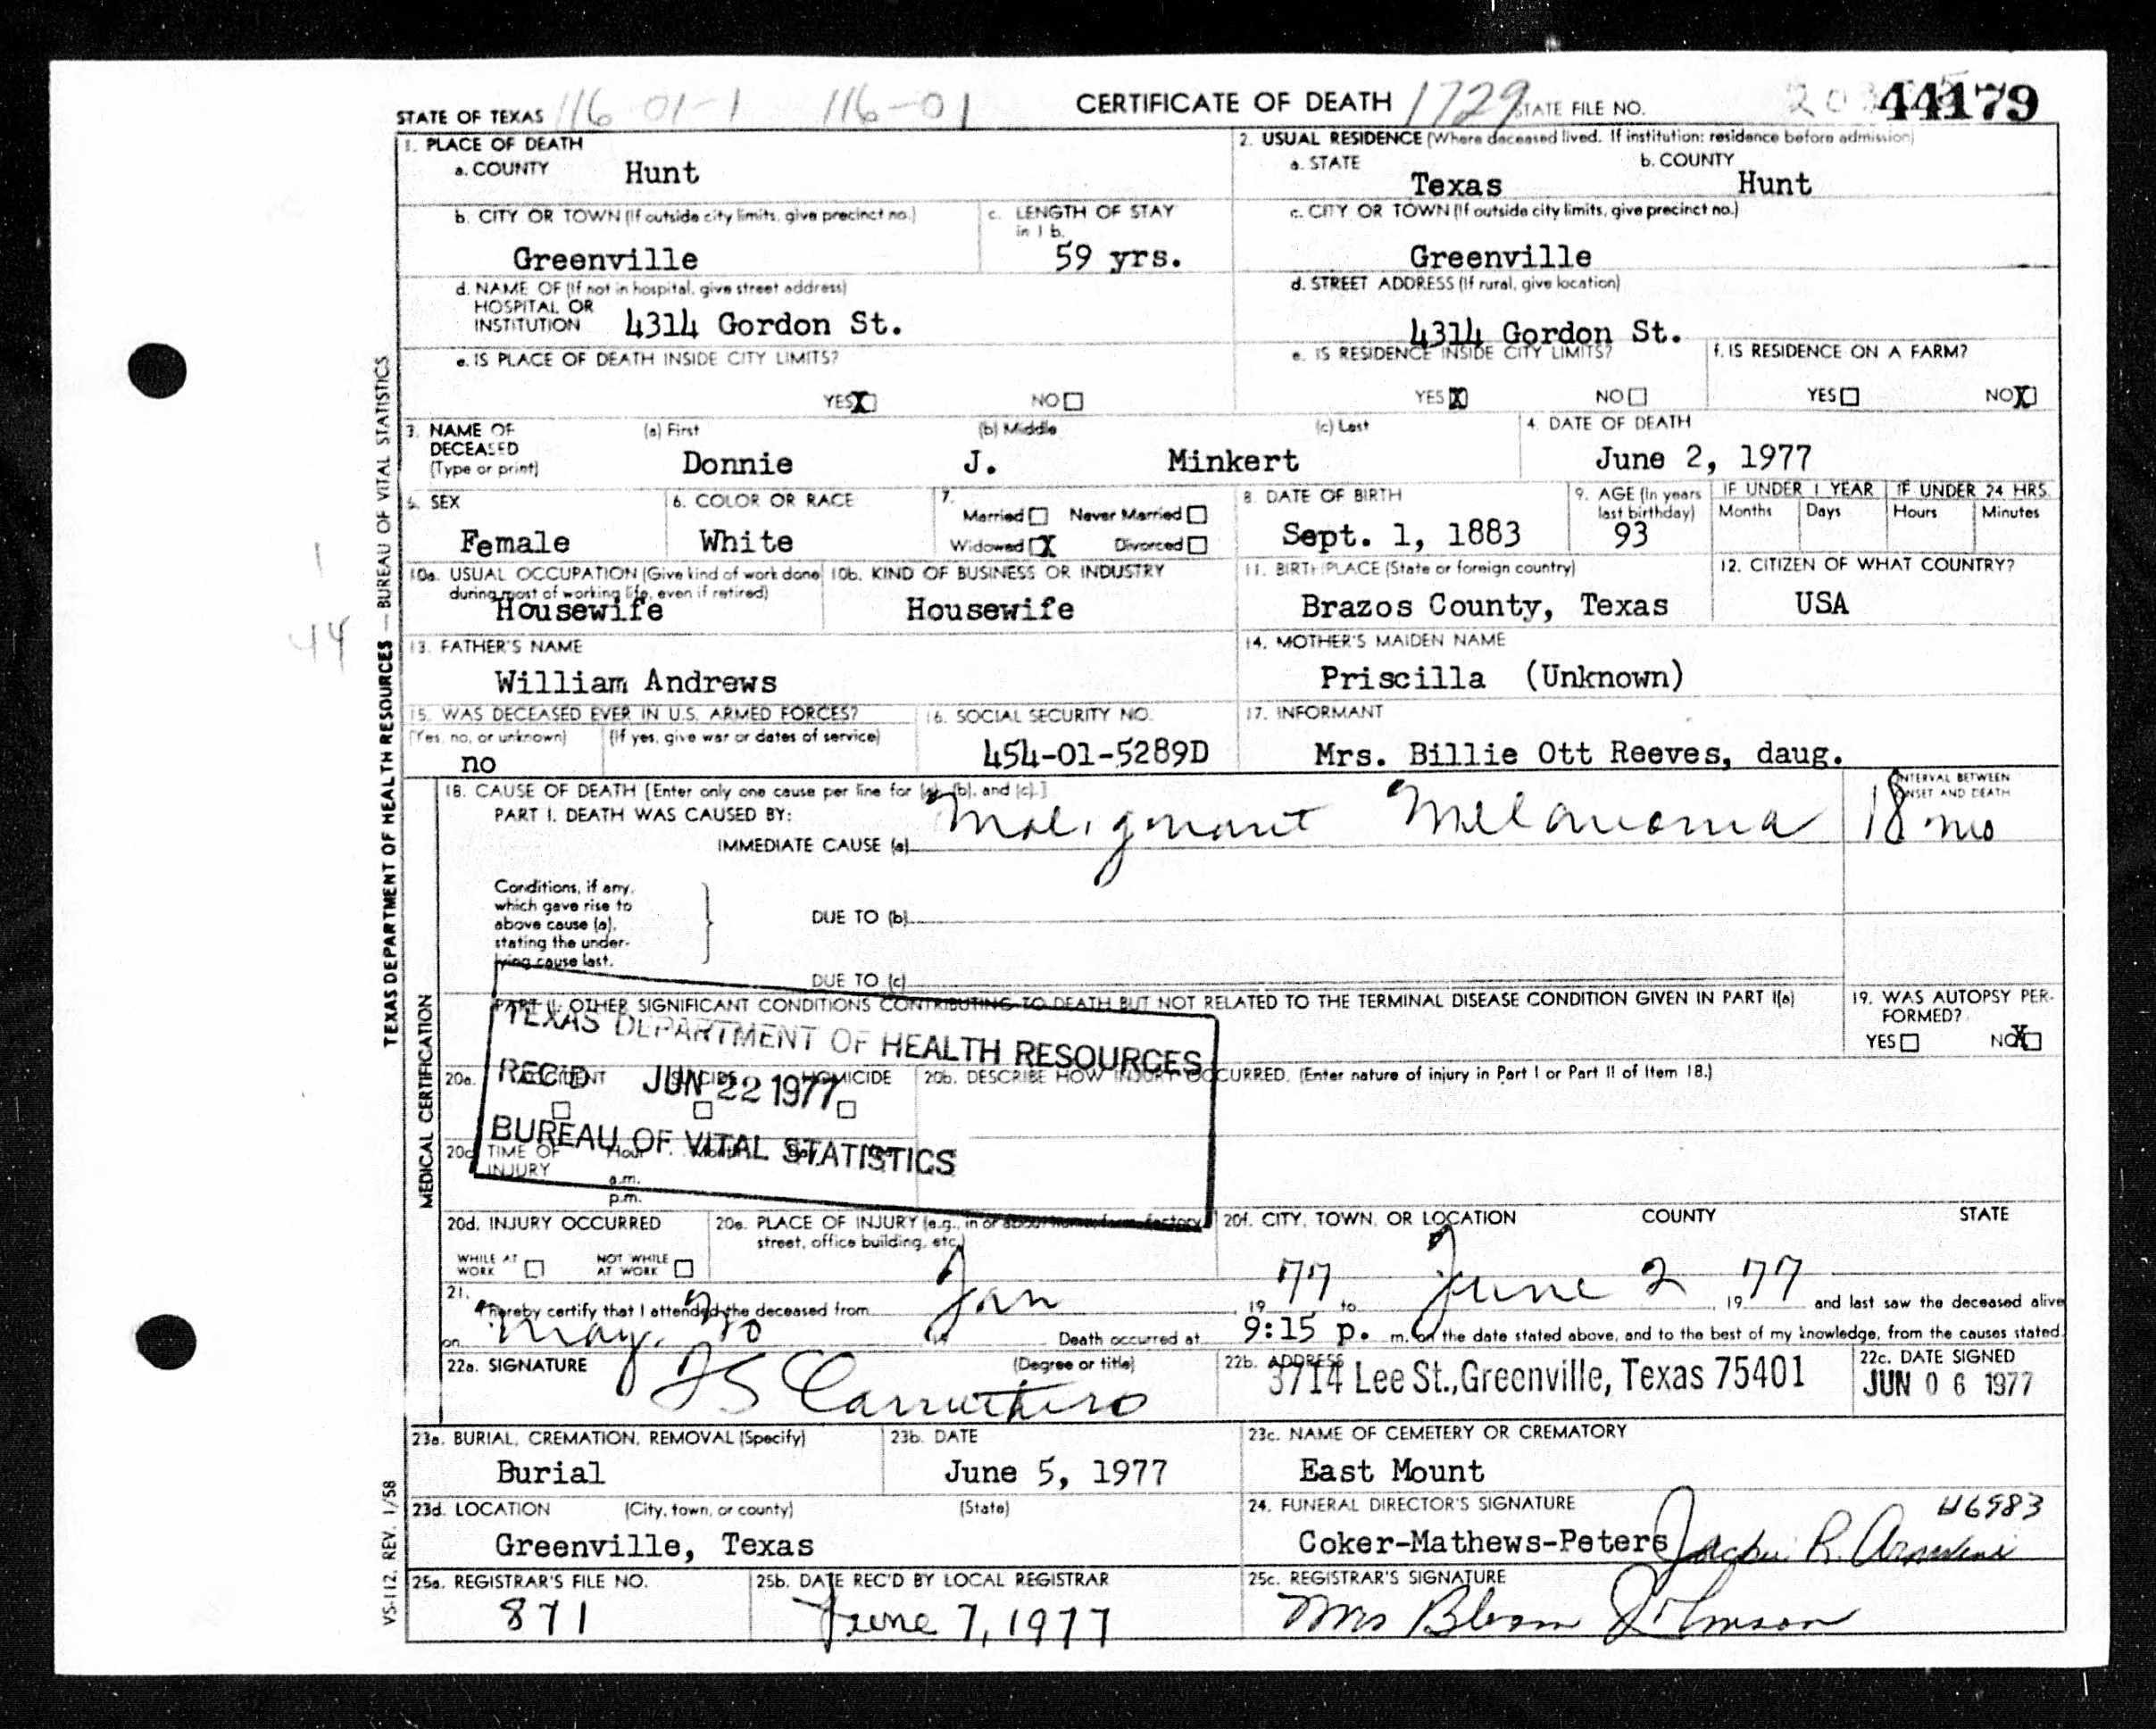 STATE OF TEXAS 116 01-1 116-01 CERTIFICATE OF DEATH 1729 STATE FILE NO. 44179
1. PLACE OF DEATH
a. COUNTY Hunt
2. USUAL RESIDENCE (Where deceased lived. If institution: residence before admission)
a. STATE Texas b. COUNTY Hunt
b. CITY OR TOWN (If outside city limits, give precinct no.) Greenville
c. LENGTH OF STAY in 1 b. 59 yrs.
c. CITY OR TOWN (If outside city limits, give precinct no.) Greenville
d. NAME OF (If not in hospital, give street address)
HOSPITAL OR
INSTITUTION 4314 Gordon St.
d. STREET ADDRESS (If rural, give location)
4314 Gordon St.
e. IS PLACE OF DEATH INSIDE CITY LIMITS?
YES X NO
e. IS RESIDENCE INSIDE CITY LIMITS?
YES X NO
f. IS RESIDENCE ON A FARM?
YES NO X
3. NAME OF DECEASED (Type or print)
(a) First (b) Middle (c) Last
Donnie J. Minkert
4. DATE OF DEATH
June 2, 1977
5. SEX
Female
6. COLOR OR RACE
White
7.
Married Never Married
Widowed X Divorced
8. DATE OF BIRTH
Sept. 1, 1883
9. AGE (In years last birthday)
93
IF UNDER 1 YEAR
Months Days
IF UNDER 24 HRS.
Hours Minutes
10a. USUAL OCCUPATION (Give kind of work done during most of working life, even if retired)
Housewife
10b. KIND OF BUSINESS OR INDUSTRY
Housewife
11. BIRTHPLACE (State or foreign country)
Brazos County, Texas
12. CITIZEN OF WHAT COUNTRY?
USA
13. FATHER'S NAME
William Andrews
14. MOTHER'S MAIDEN NAME
Priscilla (Unknown)
15. WAS DECEASED EVER IN U.S. ARMED FORCES?
(Yes, no, or unknown) (If yes, give war or dates of service)
no
16. SOCIAL SECURITY NO.
454-01-5289D
17. INFORMANT
Mrs. Billie Ott Reeves, daug.
18. CAUSE OF DEATH [Enter only one cause per line for (a), (b), and (c).]
PART I. DEATH WAS CAUSED BY:
IMMEDIATE CAUSE (a) Malignant Melanoma
INTERVAL BETWEEN ONSET AND DEATH
18 mo
Conditions, if any,
which gave rise to
above cause (a),
stating the under-
lying cause last.
DUE TO (b)
DUE TO (c)
PART II. OTHER SIGNIFICANT CONDITIONS CONTRIBUTING TO DEATH BUT NOT RELATED TO THE TERMINAL DISEASE CONDITION GIVEN IN PART I(a)
19. WAS AUTOPSY PER-
FORMED?
YES NO X
TEXAS DEPARTMENT OF HEALTH RESOURCES
REC'D JUN 22 1977
BUREAU OF VITAL STATISTICS
20a. ACCIDENT SUICIDE HOMICIDE
20b. DESCRIBE HOW INJURY OCCURRED. (Enter nature of injury in Part I or Part II of Item 18.)
20c. TIME OF INJURY
Hour Month
a.m.
p.m.
20d. INJURY OCCURRED
WHILE AT WORK NOT WHILE AT WORK
20e. PLACE OF INJURY (e.g., in or about home, farm, factory,
street, office building, etc.)
20f. CITY, TOWN, OR LOCATION COUNTY STATE
21.
I hereby certify that I attended the deceased from Jan 19 77 to June 2, 19 77 and last saw the deceased alive
on May 30 19 Death occurred at 9:15 p. m. on the date stated above, and to the best of my knowledge, from the causes stated.
22a. SIGNATURE (Degree or title)
JS Carruthers
22b. ADDRESS
3714 Lee St., Greenville, Texas 75401
22c. DATE SIGNED
JUN 06 1977
23a. BURIAL, CREMATION, REMOVAL (Specify)
Burial
23b. DATE
June 5, 1977
23c. NAME OF CEMETERY OR CREMATORY
East Mount
23d. LOCATION (City, town, or county) (State)
Greenville, Texas
24. FUNERAL DIRECTOR'S SIGNATURE
Coker-Mathews-Peters
25a. REGISTRAR'S FILE NO.
871
25b. DATE REC'D BY LOCAL REGISTRAR
June 7, 1977
25c. REGISTRAR'S SIGNATURE
Mrs Johnson
TEXAS DEPARTMENT OF HEALTH RESOURCES — BUREAU OF VITAL STATISTICS
MEDICAL CERTIFICATION
VS-112, REV. 1/58
44